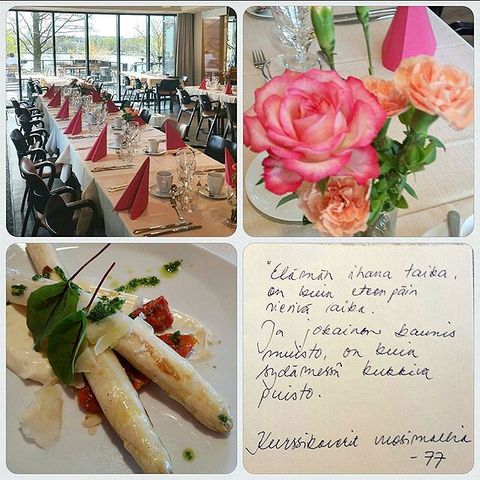 "Elämän ihana taika,
on kuin eteenpäin
vierivä aika.
Ja jokainen kaunis
muisto, on kuin
sydämessä kukkiva
puisto.
Kurssikaverit vuosimallia
-77